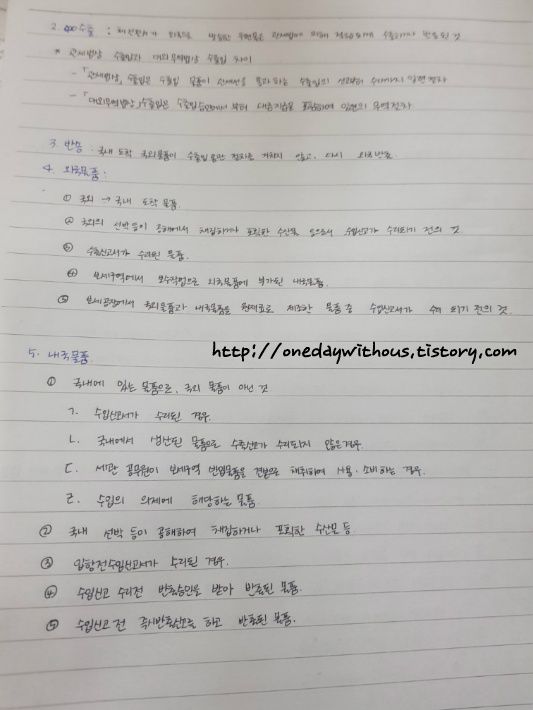 2. 수출 : 체신관서가 외국으로 발송한 우편물은 관세법에 의해 적법하게 수출되거나 반송된 것
* 관세법상 수출입과 대외무역법상 수출입 차이
- 「관세법상」 수출입은 수출입 물품이 세관을 통과하는 수출입의 신고부터 수리까지 일련 절차
- 「대외무역법상」 수출입은 수출입승인에서부터 대금지급을 포함하여 일련의 무역절차
3. 반송 : 국내 도착 국외물품이 수출입 통관 절차를 거치지 않고, 다시 외국 반출.
4. 외국물품 :
① 국외 → 국내 도착 물품.
② 국외의 선박 등이 공해에서 채집하거나 포획한 수산물 등으로서 수입신고가 수리되기 전의 것
③ 수출신고서가 수리된 물품.
④ 보세구역에서 보수작업으로 외국물품에 부가된 내국물품.
⑤ 보세공장에서 국외물품과 내국물품을 원재료로 제조한 물품 중 수입신고서가 수리 되기 전의 것.
5. 내국물품
http://onedaywithous.tistory.com
① 국내에 있는 물품으로, 국외 물품이 아닌 것
ㄱ. 수입신고서가 수리된 경우.
ㄴ. 국내에서 생산된 물품으로 수출신고가 수리되지 않은 경우.
ㄷ. 세관 공무원이 보세구역 반입물품을 견본으로 채취하여 사용·소비하는 경우.
ㄹ. 수입의 의제에 해당하는 물품.
② 국내 선박 등이 공해하여 채집하거나 포획한 수산물 등
③ 입항전수입신고서가 수리된 경우.
④ 수입신고 수리전 반출승인을 받아 반출된 물품.
⑤ 수입신고 전 즉시반출신고를 하고 반출된 물품.